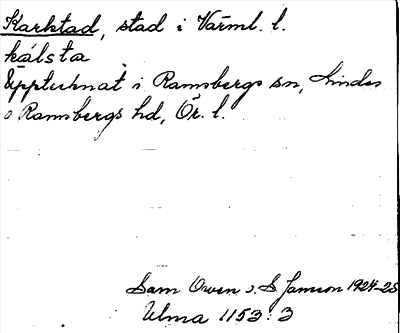 Karlstad, stad i Värml. l.
kálsta
Upptecknat i Ramsbergs sn, Lindes
o Ramsbergs hd, Ör. l.
Sam Owen o. S Janson 1924-25
Ulma 1153:3